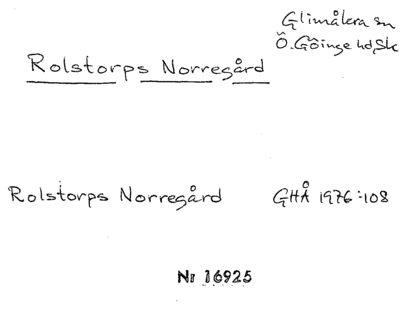 Glimåkra sn
Ö. Göinge hd, Sk
Rolstorps Norregård
Rolstorps Norregård GHÅ 1976:108
Nr 16925